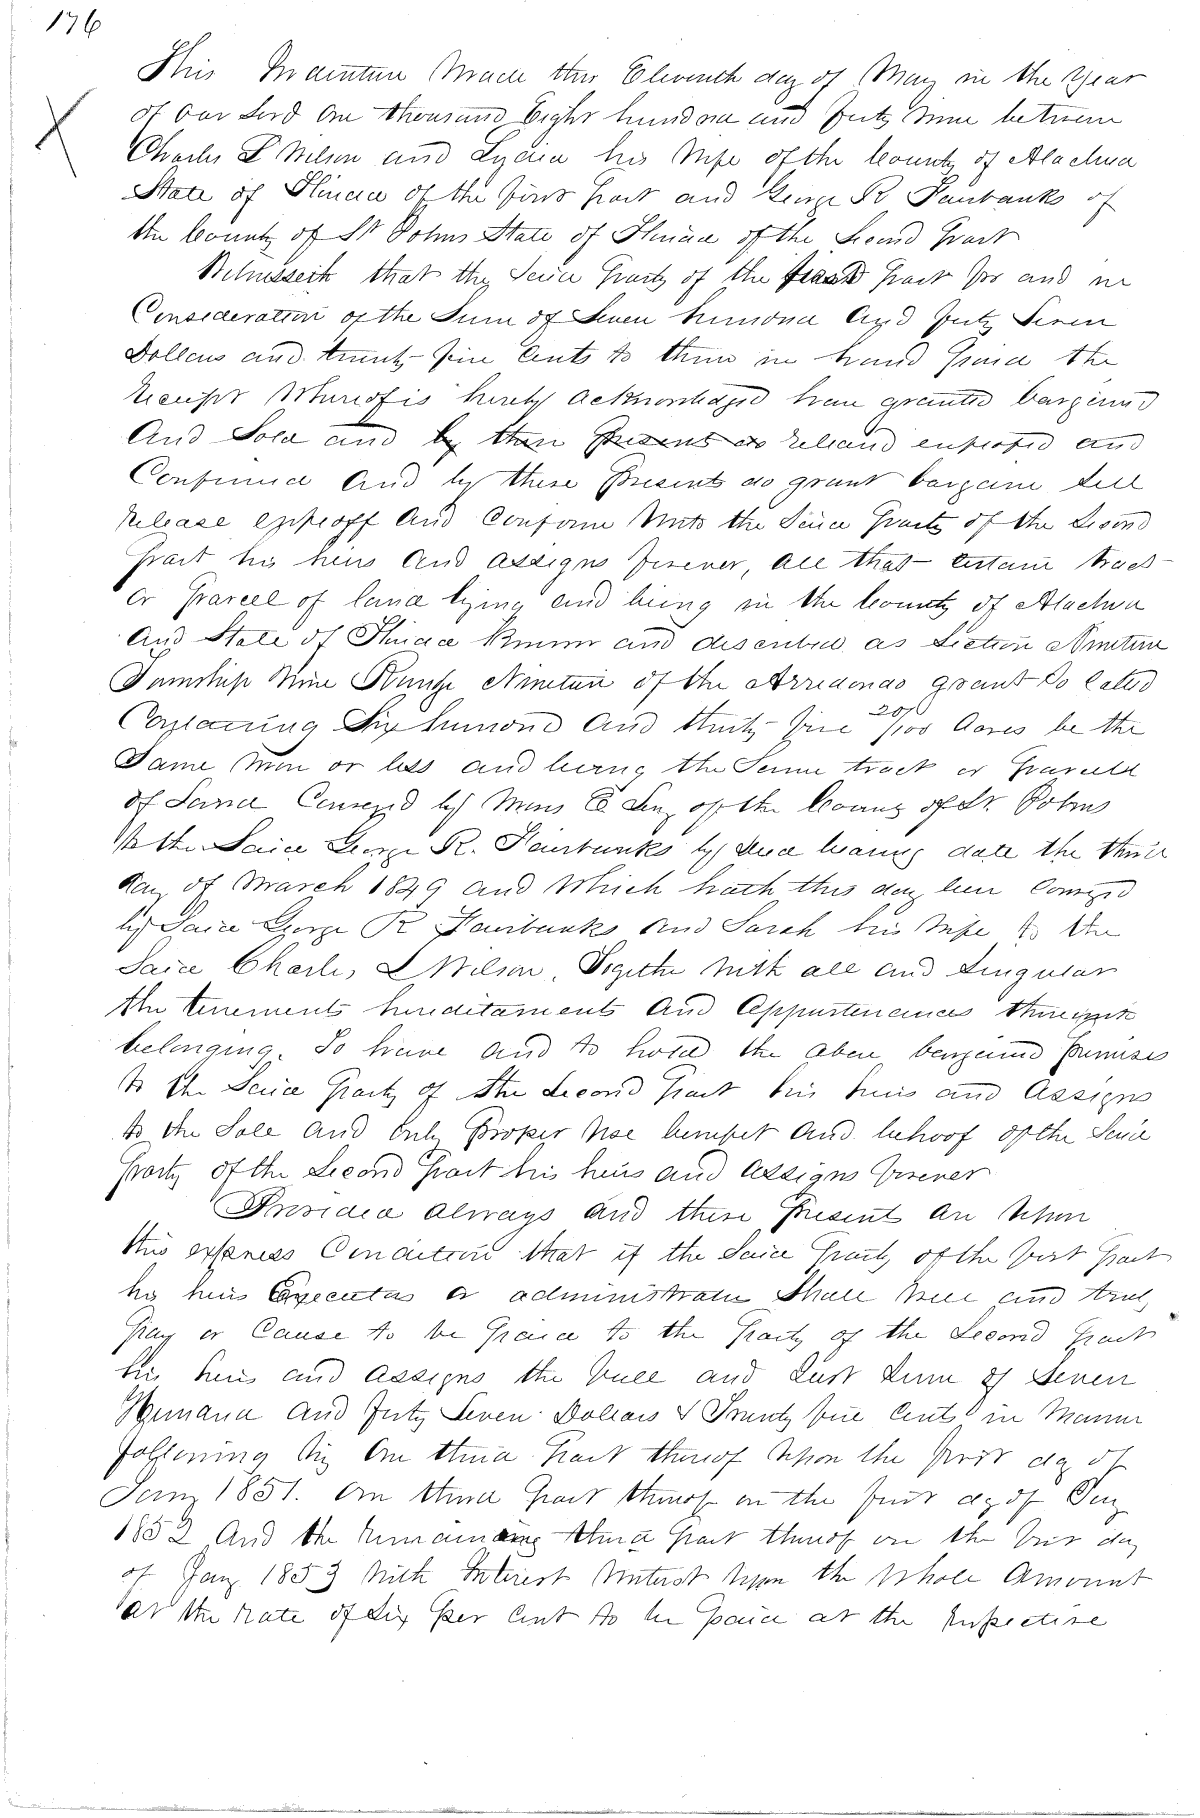 176
This Indenture Made this Eleventh day of May in the Year
of our Lord One thousand Eight hundred and forty Nine between
Charles L Wilson and Lydia his Wife of the County of Alachua
State of Florida of the first part and George R Fairbanks of
the County of St Johns State of Florida of the Second Part
Witnesseth that the Said Party of the first part for and in
Consideration of the Sum of Seven hundred And forty Seven
Dollars and twenty-five Cents to them in hand paid the
receipt Whereof is hereby acknowledged have granted bargained
And Sold and by these presents do released enfeoffed and
Confirmed And by these Presents do grant bargain Sell
release enfeoff And Conform Unto the Said Party of the Second
Part his heirs And assigns forever, all that certain tract
or Parcel of land lying and being in the County of Alachua
And State of Florida Known and described as Section Nineteen
Township Nine Range Nineteen of the Arredondo grant So Called
Containing Six hundred And thirty-five 20/100 Acres be the
Same More or less and being the Same tract or Parcell
of Land Conveyed by Moses E Levy of the County of St. Johns
to the Said George R. Fairbanks by deed bearing date the third
day of March 1849 and Which hath this day been Conveyed
by Said George R Fairbanks And Sarah his Wife to the
Said Charles L Wilson, Together With all and Singular
the tenements hereditaments And Appurtenances thereunto
belonging. To have and to hold the above bargained premises
to the Said Party of the Second Part his heirs and Assigns
to the Sole And Only Proper Use benefit And behoof of the Said
Party of the Second Part his heirs and Assigns forever
Provided always and these Present are Upon
this express Condition that if the Said Party of the first Part
his heirs Executors or administrators Shall Well and truly
Pay or Cause to be Paid to the Party of the Second Part
his heirs and assigns the full and Just Sum of Seven
Hundred And forty Seven Dollars & Twenty five Cents in Manner
following viz One third Part thereof Upon the first day of
Jany 1851. One third Part thereof on the first day of Jany
1852 And the remaining third Part thereof on the first day
of Jany 1853 With Interest Interest Upon the Whole Amount
at the rate of Six per Cent to be paid at the respective